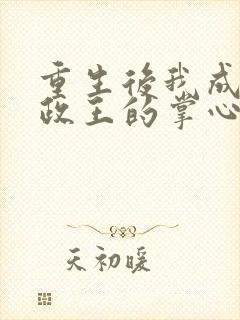 重生後我成
政王的掌心
天初暖